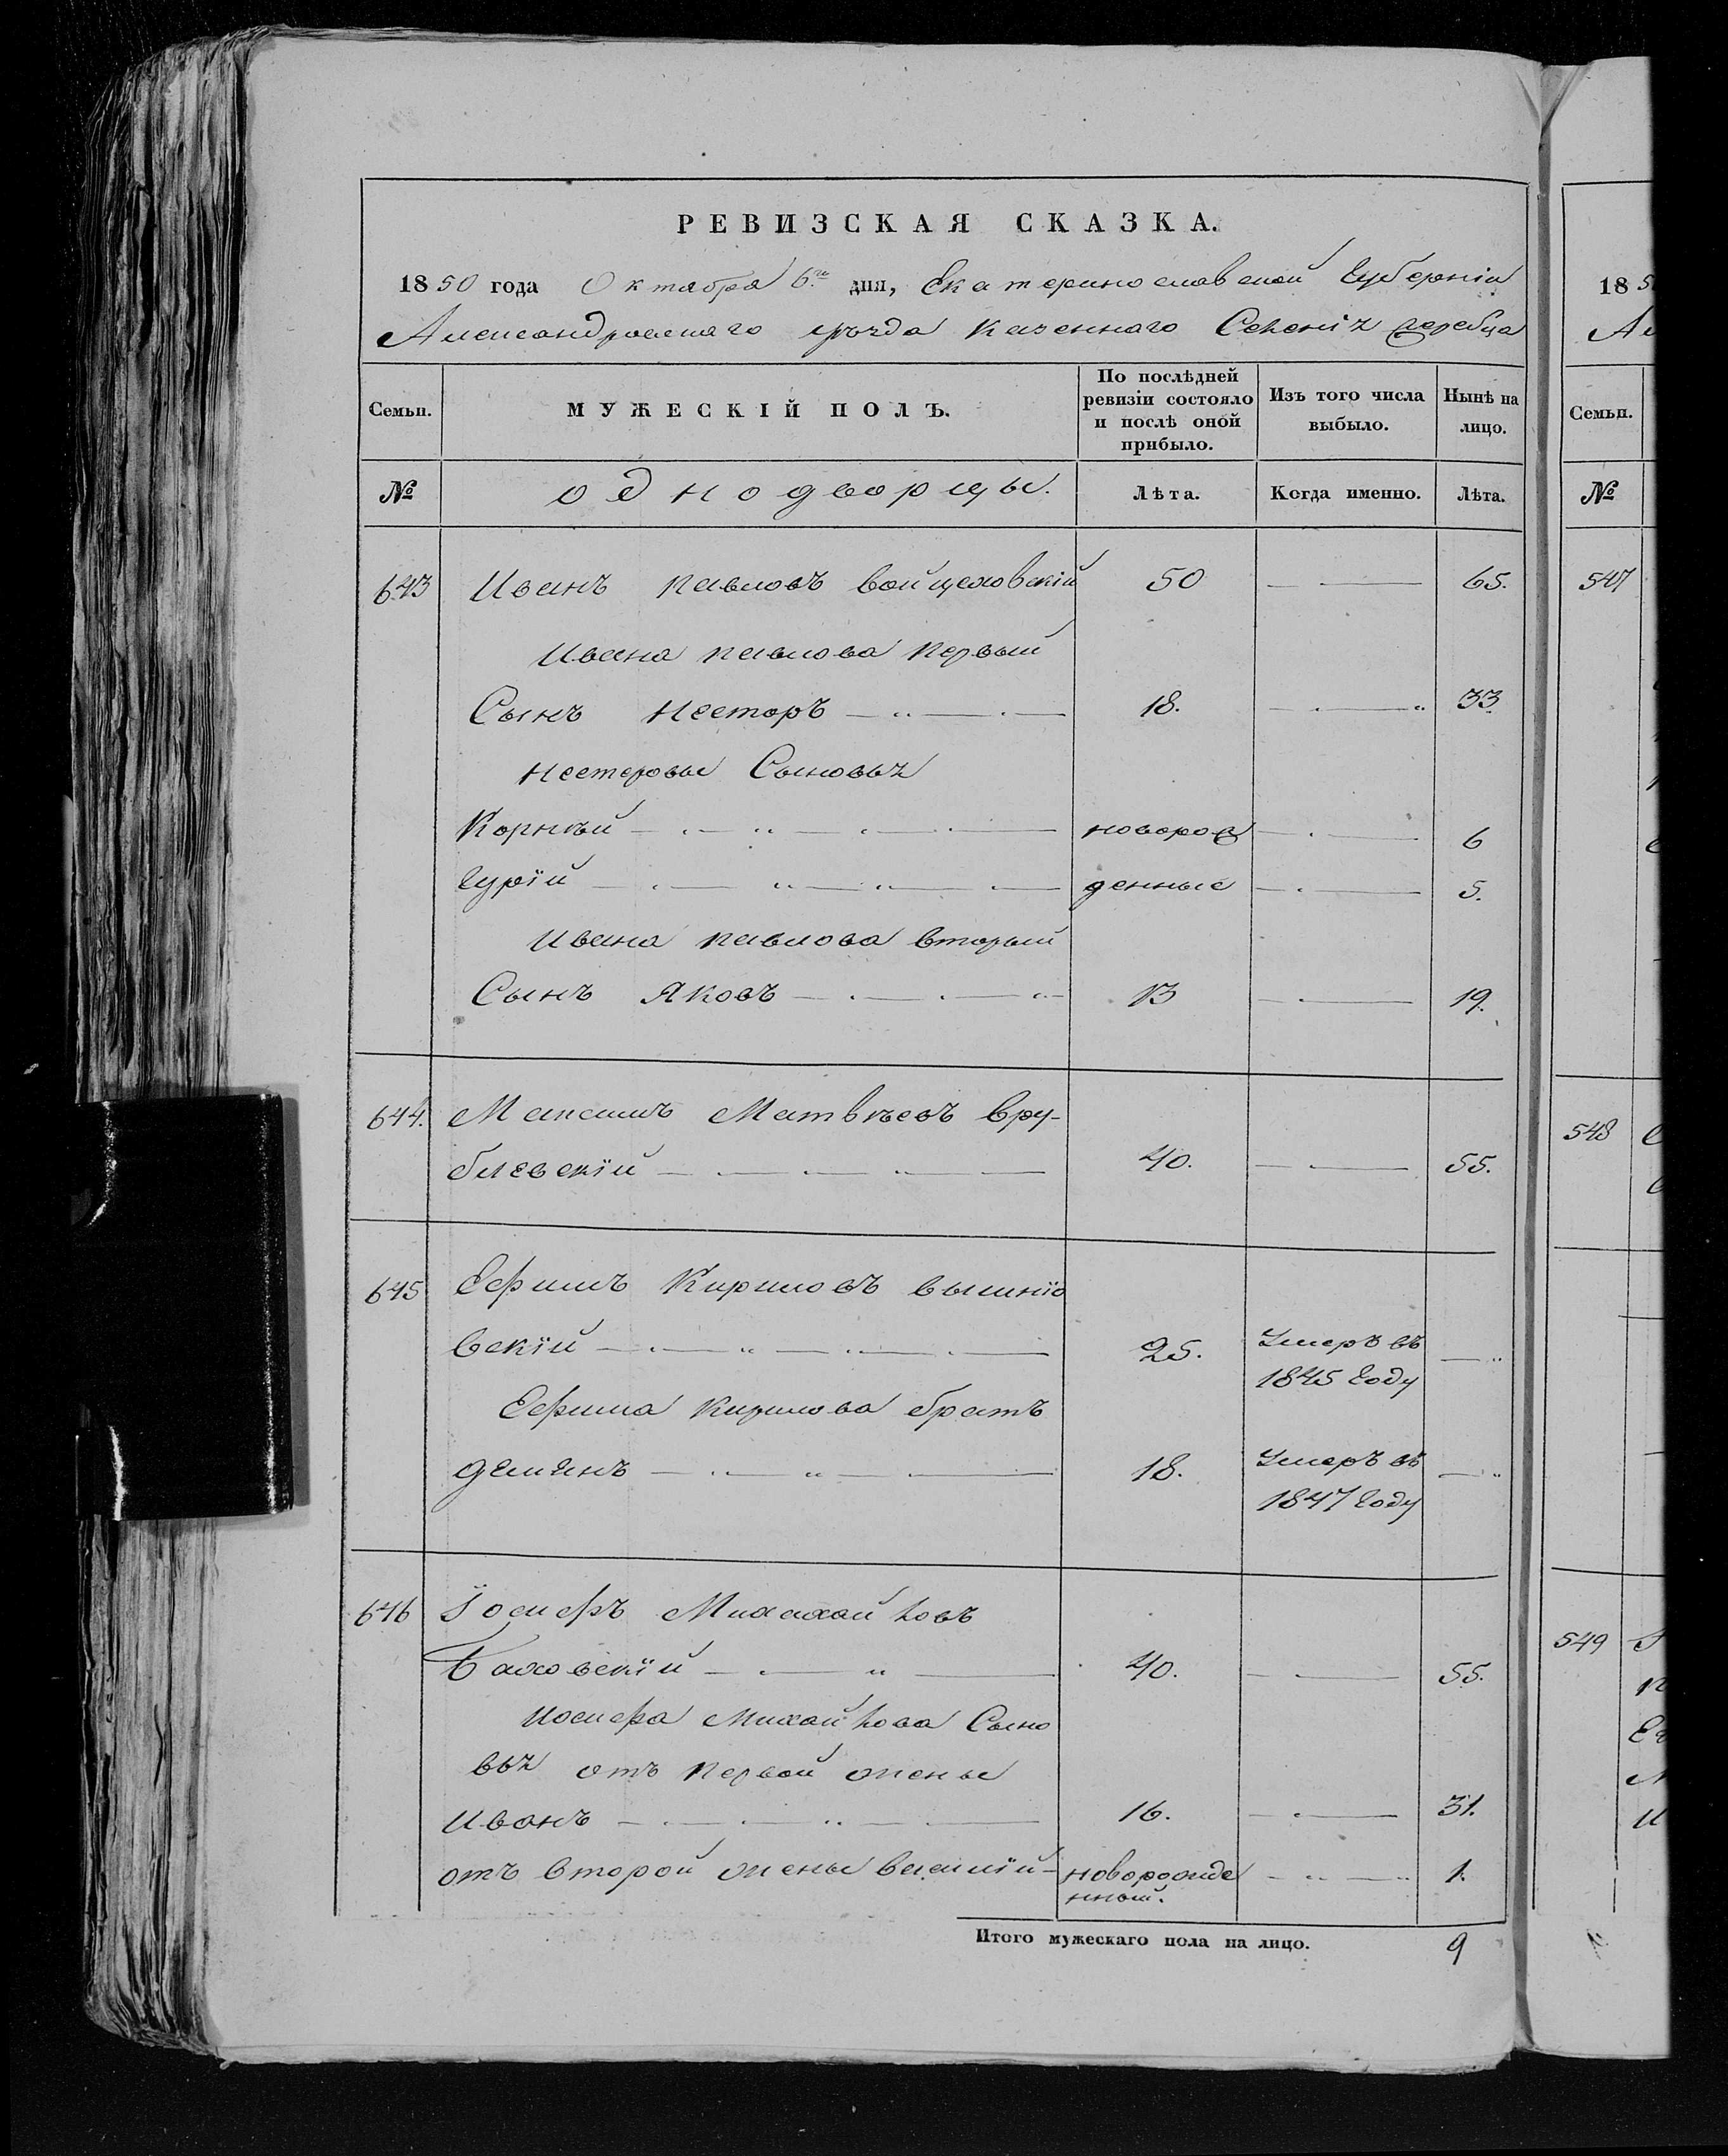 РЕВИЗСКАЯ СКАЗКА.
1850 года Октября 6го дня, Екатеринославской Губерніи
Александровскаго уѣзда казеннаго Селенія
Семьи. МУЖЕСКІЙ ПОЛЪ. По послѣдней ревизіи состояло и послѣ оной прибыло. Изъ того числа выбыло. Нынѣ на лицо.
№ однодворцы. Лѣта. Когда именно. Лѣта.
643 Иванъ павловъ войцеховскій 50 65.
Ивана павлова первый
Сынъ Несторъ 18. 33
Нестеровы Сыновья
Корнѣй новорож 6
Гурій денные 5.
Ивана павлова вторый
Сынъ Яковъ 13 19.
644. Максимъ Матвѣевъ вру-
блевскій 40. 55.
645 Ефимъ Кириловъ вышніо
вскій 25. Умеръ въ
1845 Году
Ефима кирилова братъ
демянъ 18. Умеръ въ
1847 Году
646 Іосифъ
Баховскій 40. 55.
Иосифа Михайлова Сыно
вья отъ первой жены
Иванъ 16. 31.
отъ второй жены василій новорожде 1.
нный.
Итого мужескаго пола на лицо. 9
18 5
Ал
Семьи.
№
547
548
549